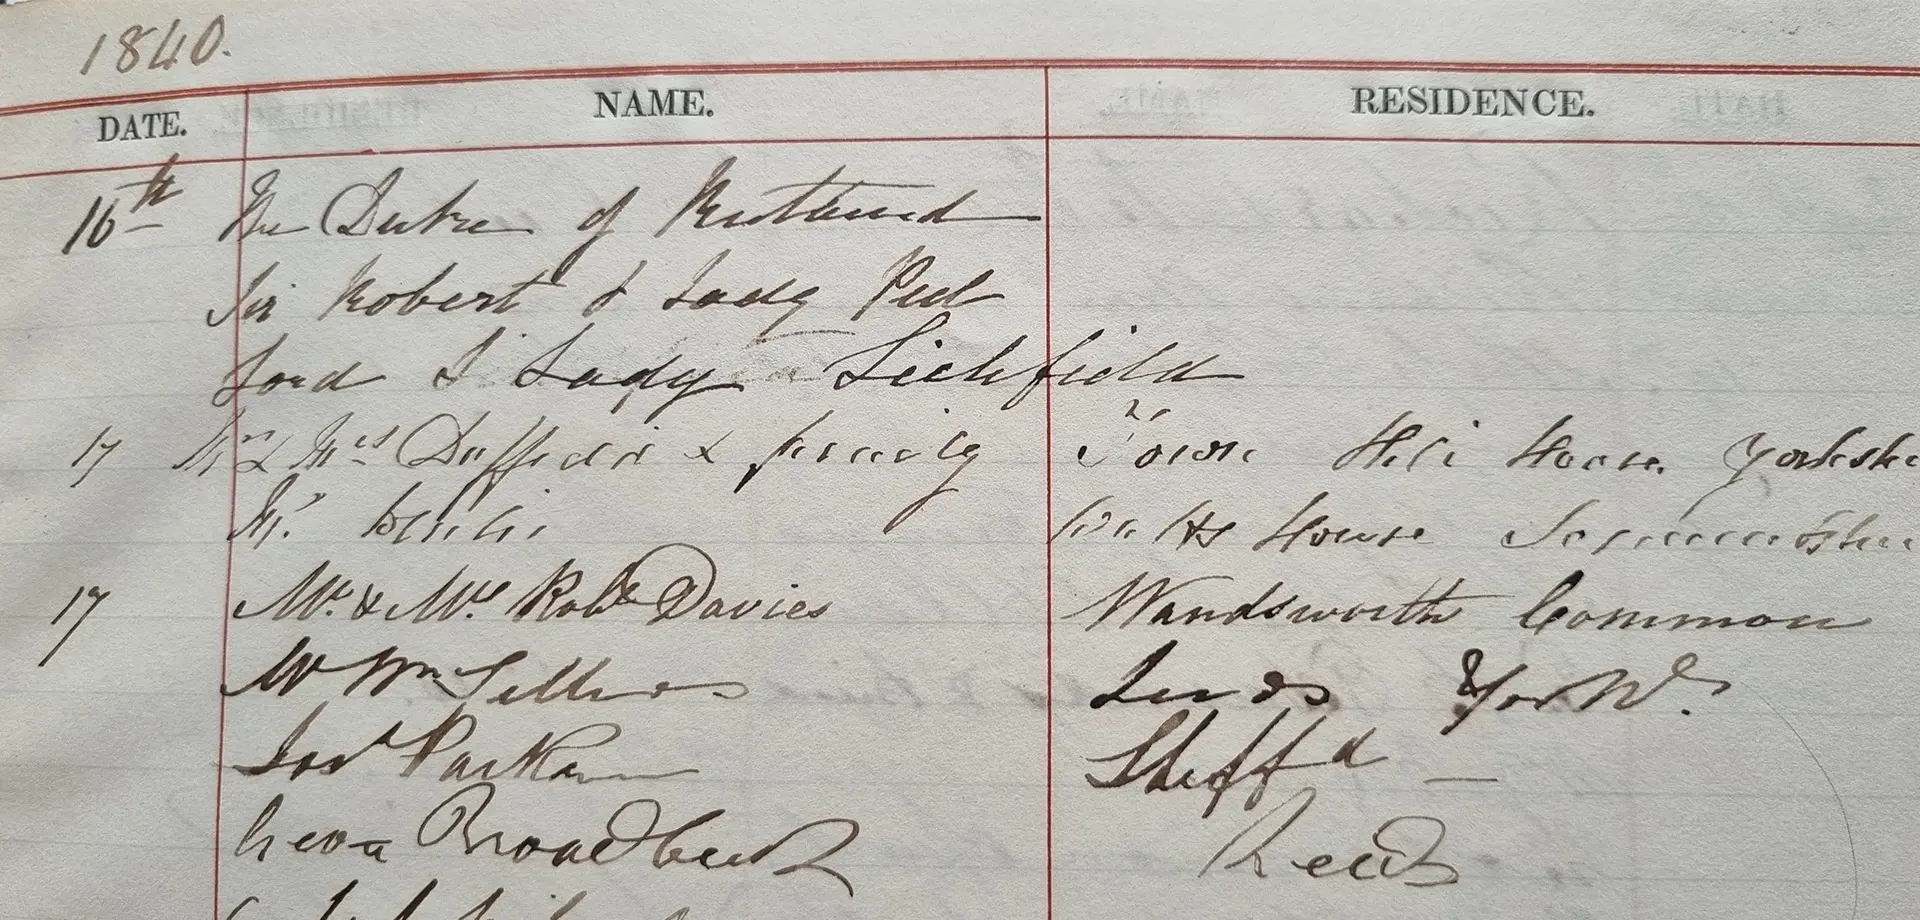 1840.
DATE. NAME. RESIDENCE.
16th The Duke of Rutland
Sir Robert & Lady Peel
Lord & Lady Lichfield
17 Mr & Mrs & family Town Hill House Yorkshi
Mr. House
17 Mr. & Mrs. Robt Davies Wandsworth Common
Mr Wm Leeds Yor
Parkin Sheffd —
Geo Broadbent Leeds